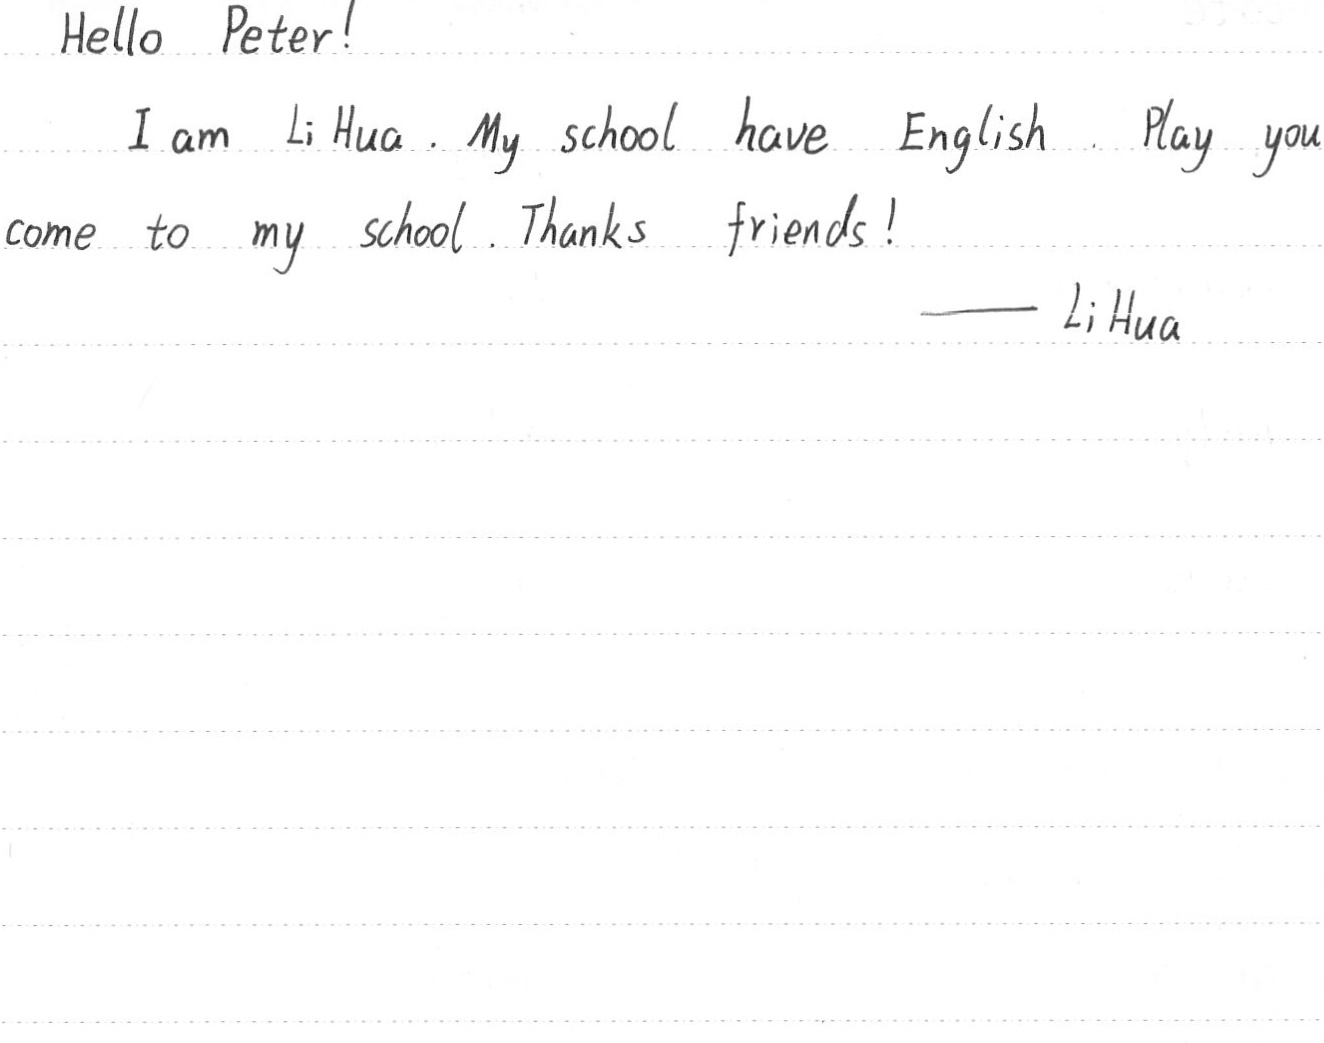 Hello Peter!
I am Li Hua. My school have English. Play you
come to my school. Thanks friends!
—— Li Hua